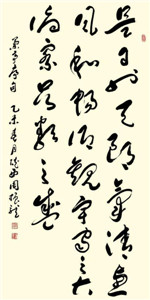 是日也天朗氣清惠
風和暢仰觀宇宙之大
俯察品類之盛
蘭亭句 乙未春月